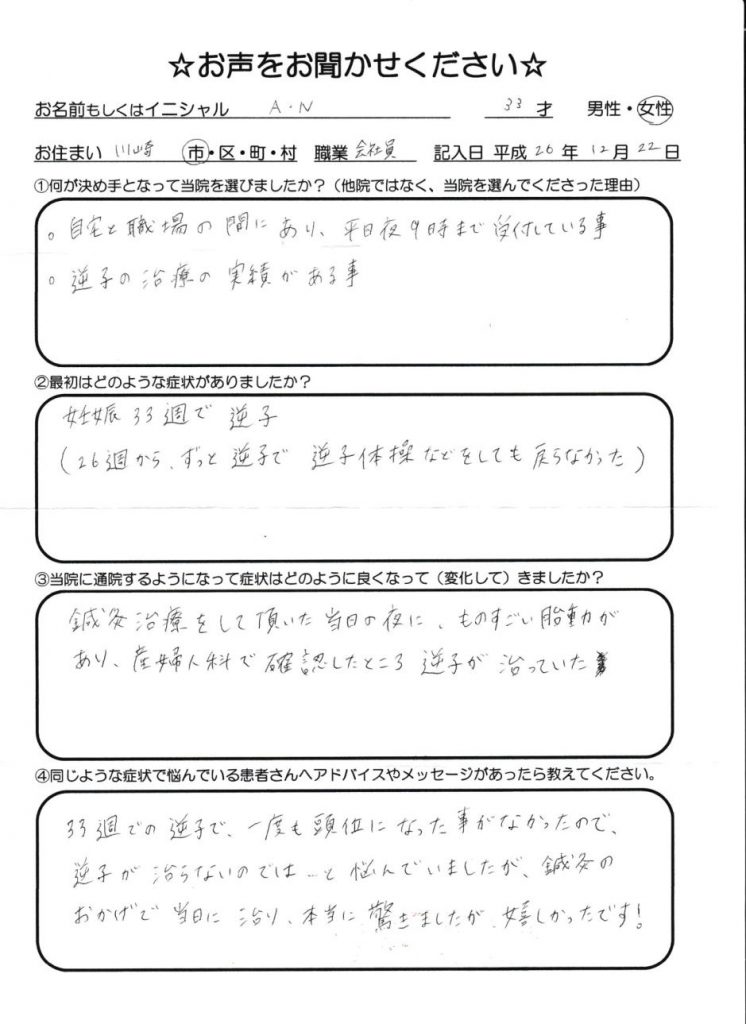 ☆お声をお聞かせください☆
お名前もしくはイニシャル A・N 33 才 男性・女性
お住まい 川崎 市・区・町・村 職業 会社員 記入日 平成 26 年 12 月 22 日
①何が決め手となって当院を選びましたか？（他院ではなく、当院を選んでくださった理由）
。自宅と職場の間にあり、平日夜9時まで受付している事
。逆子の治療の実績がある事
②最初はどのような症状がありましたか？
妊娠33週で逆子
(26週から、ずっと逆子で 逆子体操などをしても戻らなかった)
③当院に通院するようになって症状はどのように良くなって（変化して）きましたか？
鍼灸治療をして頂いた当日の夜に、ものすごい胎動が
あり、産婦人科で確認したところ逆子が治っていた
④同じような症状で悩んでいる患者さんへアドバイスやメッセージがあったら教えてください。
33週での逆子で、一度も頭位になった事がなかったので、
逆子が治らないのでは…と悩んでいましたが、鍼灸の
おかげで当日に治り、本当に驚きましたが、嬉しかったです!